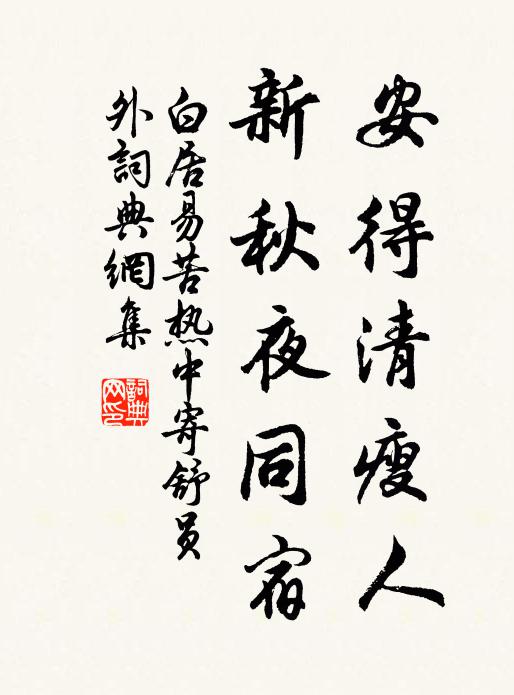 安得清瘦人
新秋夜同宿
白居易苦热中寄舒员
外詞典網集
詞典網印